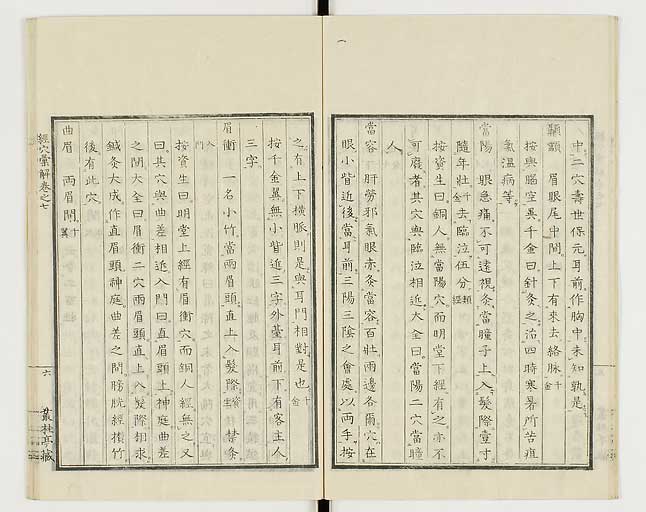 中二穴壽世保元耳前作胸中未知孰是
顳顬 眉眼尾中間上下有來去絡脉千金
按與腦空異千金曰針灸之治四時寒暑所苦疽
氣溫病等
當陽 眼急痛不可遠視灸當瞳子上入髮際壹寸
隨年壯千金去臨泣伍分類經
按資生曰銅人無當陽穴而明堂下經有之亦不
可廢者其穴與臨泣相近大全曰當陽二穴當瞳
人
當容 肝勞邪氣眼赤灸當容百壯兩邊各爾穴在
眼小眥近後當耳前三陽三陰之會處以兩手按
之有上下橫脈則是與耳門相對是也千金
按千金翼無小眥近三字外臺耳前下有客主人
三字
眉衝 一名小竹當兩眉頭直上入髮際資生 禁灸
按資生曰明堂上經有眉衝穴而銅人經無之又
曰其穴與曲差相近入門曰直眉頭上神庭曲差
之間大全曰眉衝二穴兩眉頭直上入髮際相求
鍼灸大成作直眉頭神庭曲差之間膀胱經攅竹
後有此穴
曲眉 兩眉間千翼
經穴彙解卷之七
六